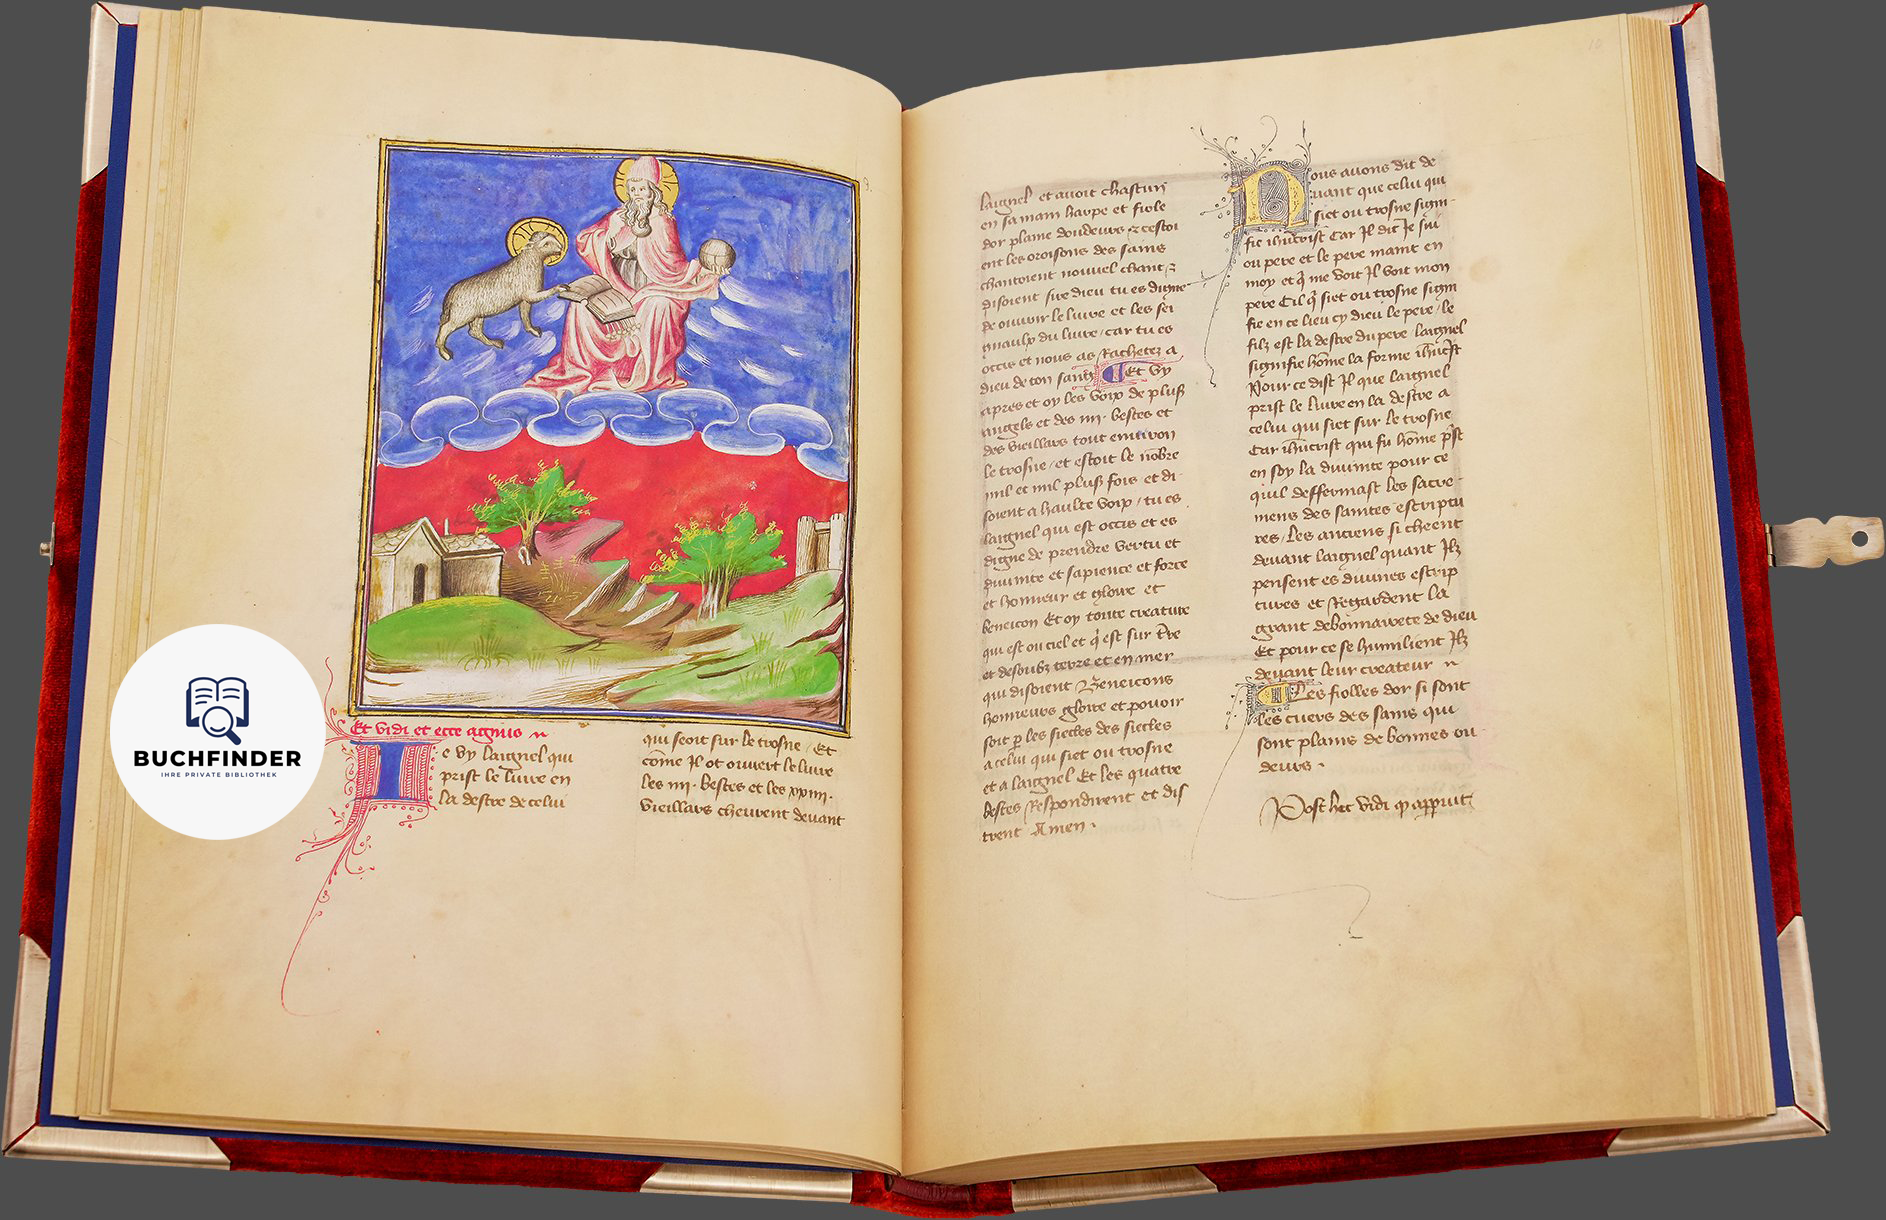 Et vidi et ecce agnus
Ie vy laignel qui
prist le livre en
la destre de celui
qui seoit sur le trosne / Et
come Il ot ouvert le livre
les iiii· bestes et les xxiiii·
vieillars cheurent devant
laignel et avoit chascun
en sa main harpe et fiole
dor plaine doudeurs z cestoi
ent les oroisons des sains
chantoient nouvel chant z
disoient sire dieu tu es digne
de ouvrir le livre et les sei
gnaulx du livre / car tu es
occis et nous as Rachetez a
dieu de ton sang Et vy
apres et oy les voix de pluss
angels et des iiii· bestes et
des vieillars tout environ
le trosne / et estoit le nobre
mil et mil pluss fois et di-
soient a haulte voix / tu es
laignel qui est occis et es
digne de prendre vertu et
divinite et sapience et force
et honneur et gloire et
beneicon Et oy toute creature
qui est ou ciel et q est sur tre
et desoubz terre et en mer
qui disoient Beneicons
honneurs gloire et povoir
soit p les siecles des siecles
a celui qui siet ou trosne
et a laignel Et les quatre
bestes Respondirent et dis
trent Amen ·
Nous avons dit de
vant que celui qui
siet ou trosne signi-
fie ihucrist Car Il dit Je sui
ou pere et le pere maint en
moy et q me voit Il voit mon
pere Cil q siet ou trosne signi
fie en ce lieu cy dieu le pere / le
filz est la destre du pere / laignel
signifie hôme la forme ihucrist
Pour ce dist Il que laignel
prist le livre en la destre a
celui qui siet sur le trosne
Car ihucrist qui fu hôme pst
en soy la divinite pour ce
quil deffermast les sacre-
mens des saintes escriptu
res / Les anciens si cheent
devant laignel quant Ilz
pensent es divines escrip
tures et Regardent la
grant debonnairete de dieu
Et pour ce se humilient Ilz
devant leur createur
Les fiolles dor si sont
les cuers des sains qui
sont plains de bonnes ou
deurs ·
Post hec vidi
BUCHFINDER
IHRE PRIVATE BIBLIOTHEK